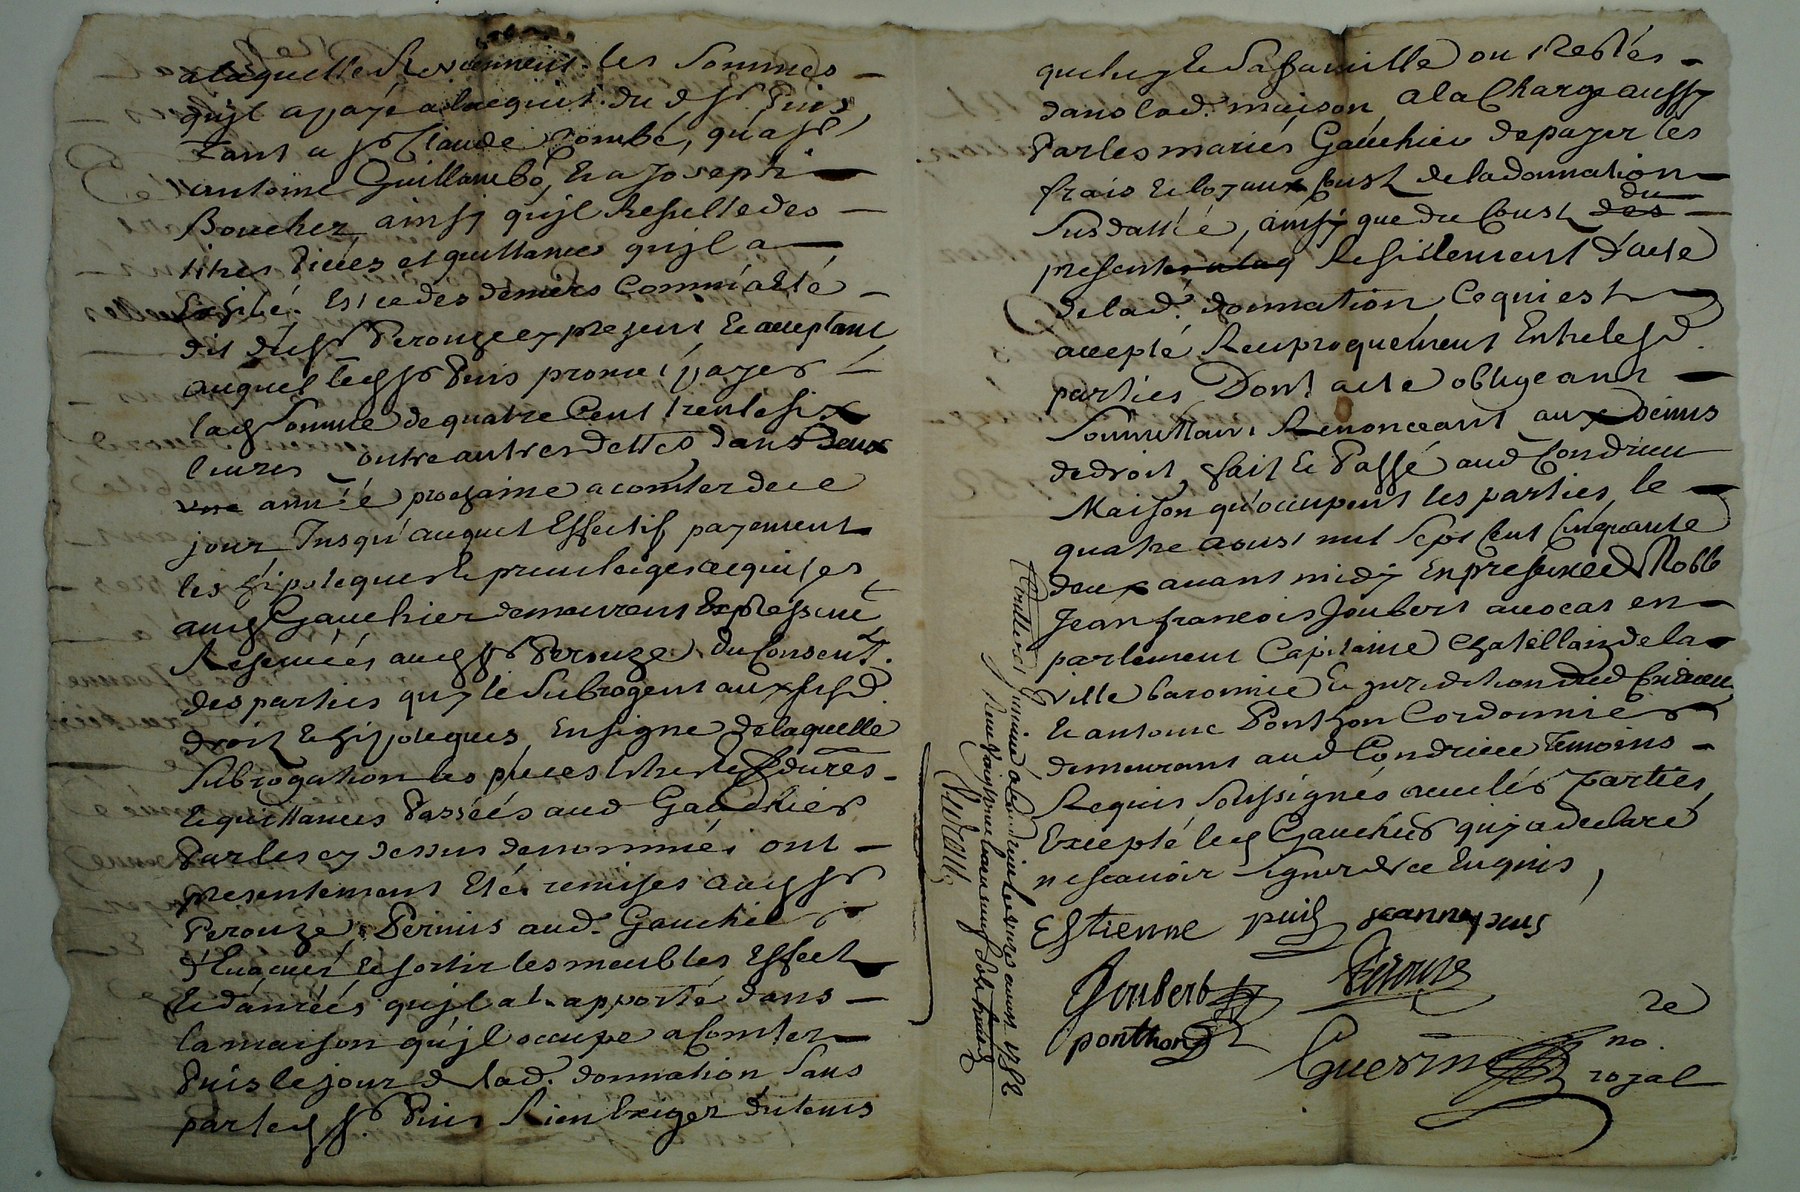 a laquelle Reviennent les sommes
qu'jl a payé a lacquit du d sr puis
tant a sr Claude Combe, qu'a sr
antoine Guillambo, & a Joseph
Boucher ainsy qu'jl Resulte des
titres pieces et quittances qu'jl a
Exhibé. Est ce des deniers comm'a Eté
dit dud sr Perouze cy present & acceptant
auquel led sr Puis promet payer
lad somme de quatre Cent trente six
livres outre autres dettes dans deux
une année prochaine a comter de ce
jour Jusqu'auquel Effectif payement
les hipoteques & privileiges acquises
aud Gauchier demeurent Expressemt
Reservées aud sr Perouze du Consentt.
des parties quy le subrogent aux susd.
droit & hipoteques, En signe de laquelle
subrogation les pieces titres
& quittances Passées aud Gauchier
Par les cy dessus denommés ont
presentement Eté remises aud sr
Perouze, Permis aud. Gauchier
d'Evacuer & sortir les meubles Effect
& danrées qu'jl at apporté dans
la maison qu'jl occupe a Comter
Puis le jour de lad. donnation sans
par led sr. Puis Rien Exiger du tems
que luy & sa famille ont Restés
dans lad. maison, a la Charge aussy
Par les mariés Gauchier de payer les
frais & loyaux Coust de la donnation
susdattée, ainsy que du Coust des du
present Resiliement d'acte
de lad. donnation Ce qui est
accepté Reciproquement Entre lesd.
parties Dont acte obligeant
soumettant Renonceant aux
de droit, fait & Passé aud Condrieu
Maison qu'occupent les parties, le
quatre aoust mil sept Cent Cinquante
deux avant midy En presence de Noble
Jean françois Joubert avocat en
parlement Capitaine Chatellain de la
ville baronnie & jurediction dud Condrieu
& antoine Ponthon Cordonnier
demeurant aud Condrieu Temoins
Requis soussignés avec les parties,
Excepté led Gauchier quy a declaré
ne scavoir signer de ce Enquis,
Estienne puis jeanne puis
Joubert Perouze
ponthon
Guerin no. re royal
Controllé & Insinué a Condrieu le onze aoust 1752